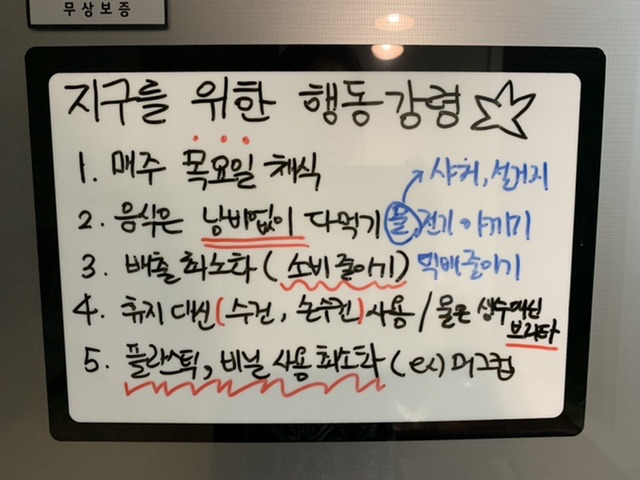 무상보증
지구를 위한 행동강령 ☆
1. 매주 목요일 채식
샤워, 설거지
2. 음식은 낭비없이 다먹기 물, 전기 아끼기
3. 배출 최소화 (소비 줄이기) 택배 줄이기
4. 휴지 대신 (수건, 손수건) 사용 / 물은 생수대신 브리타
5. 플라스틱, 비닐 사용 최소화 (ex) 머그컵